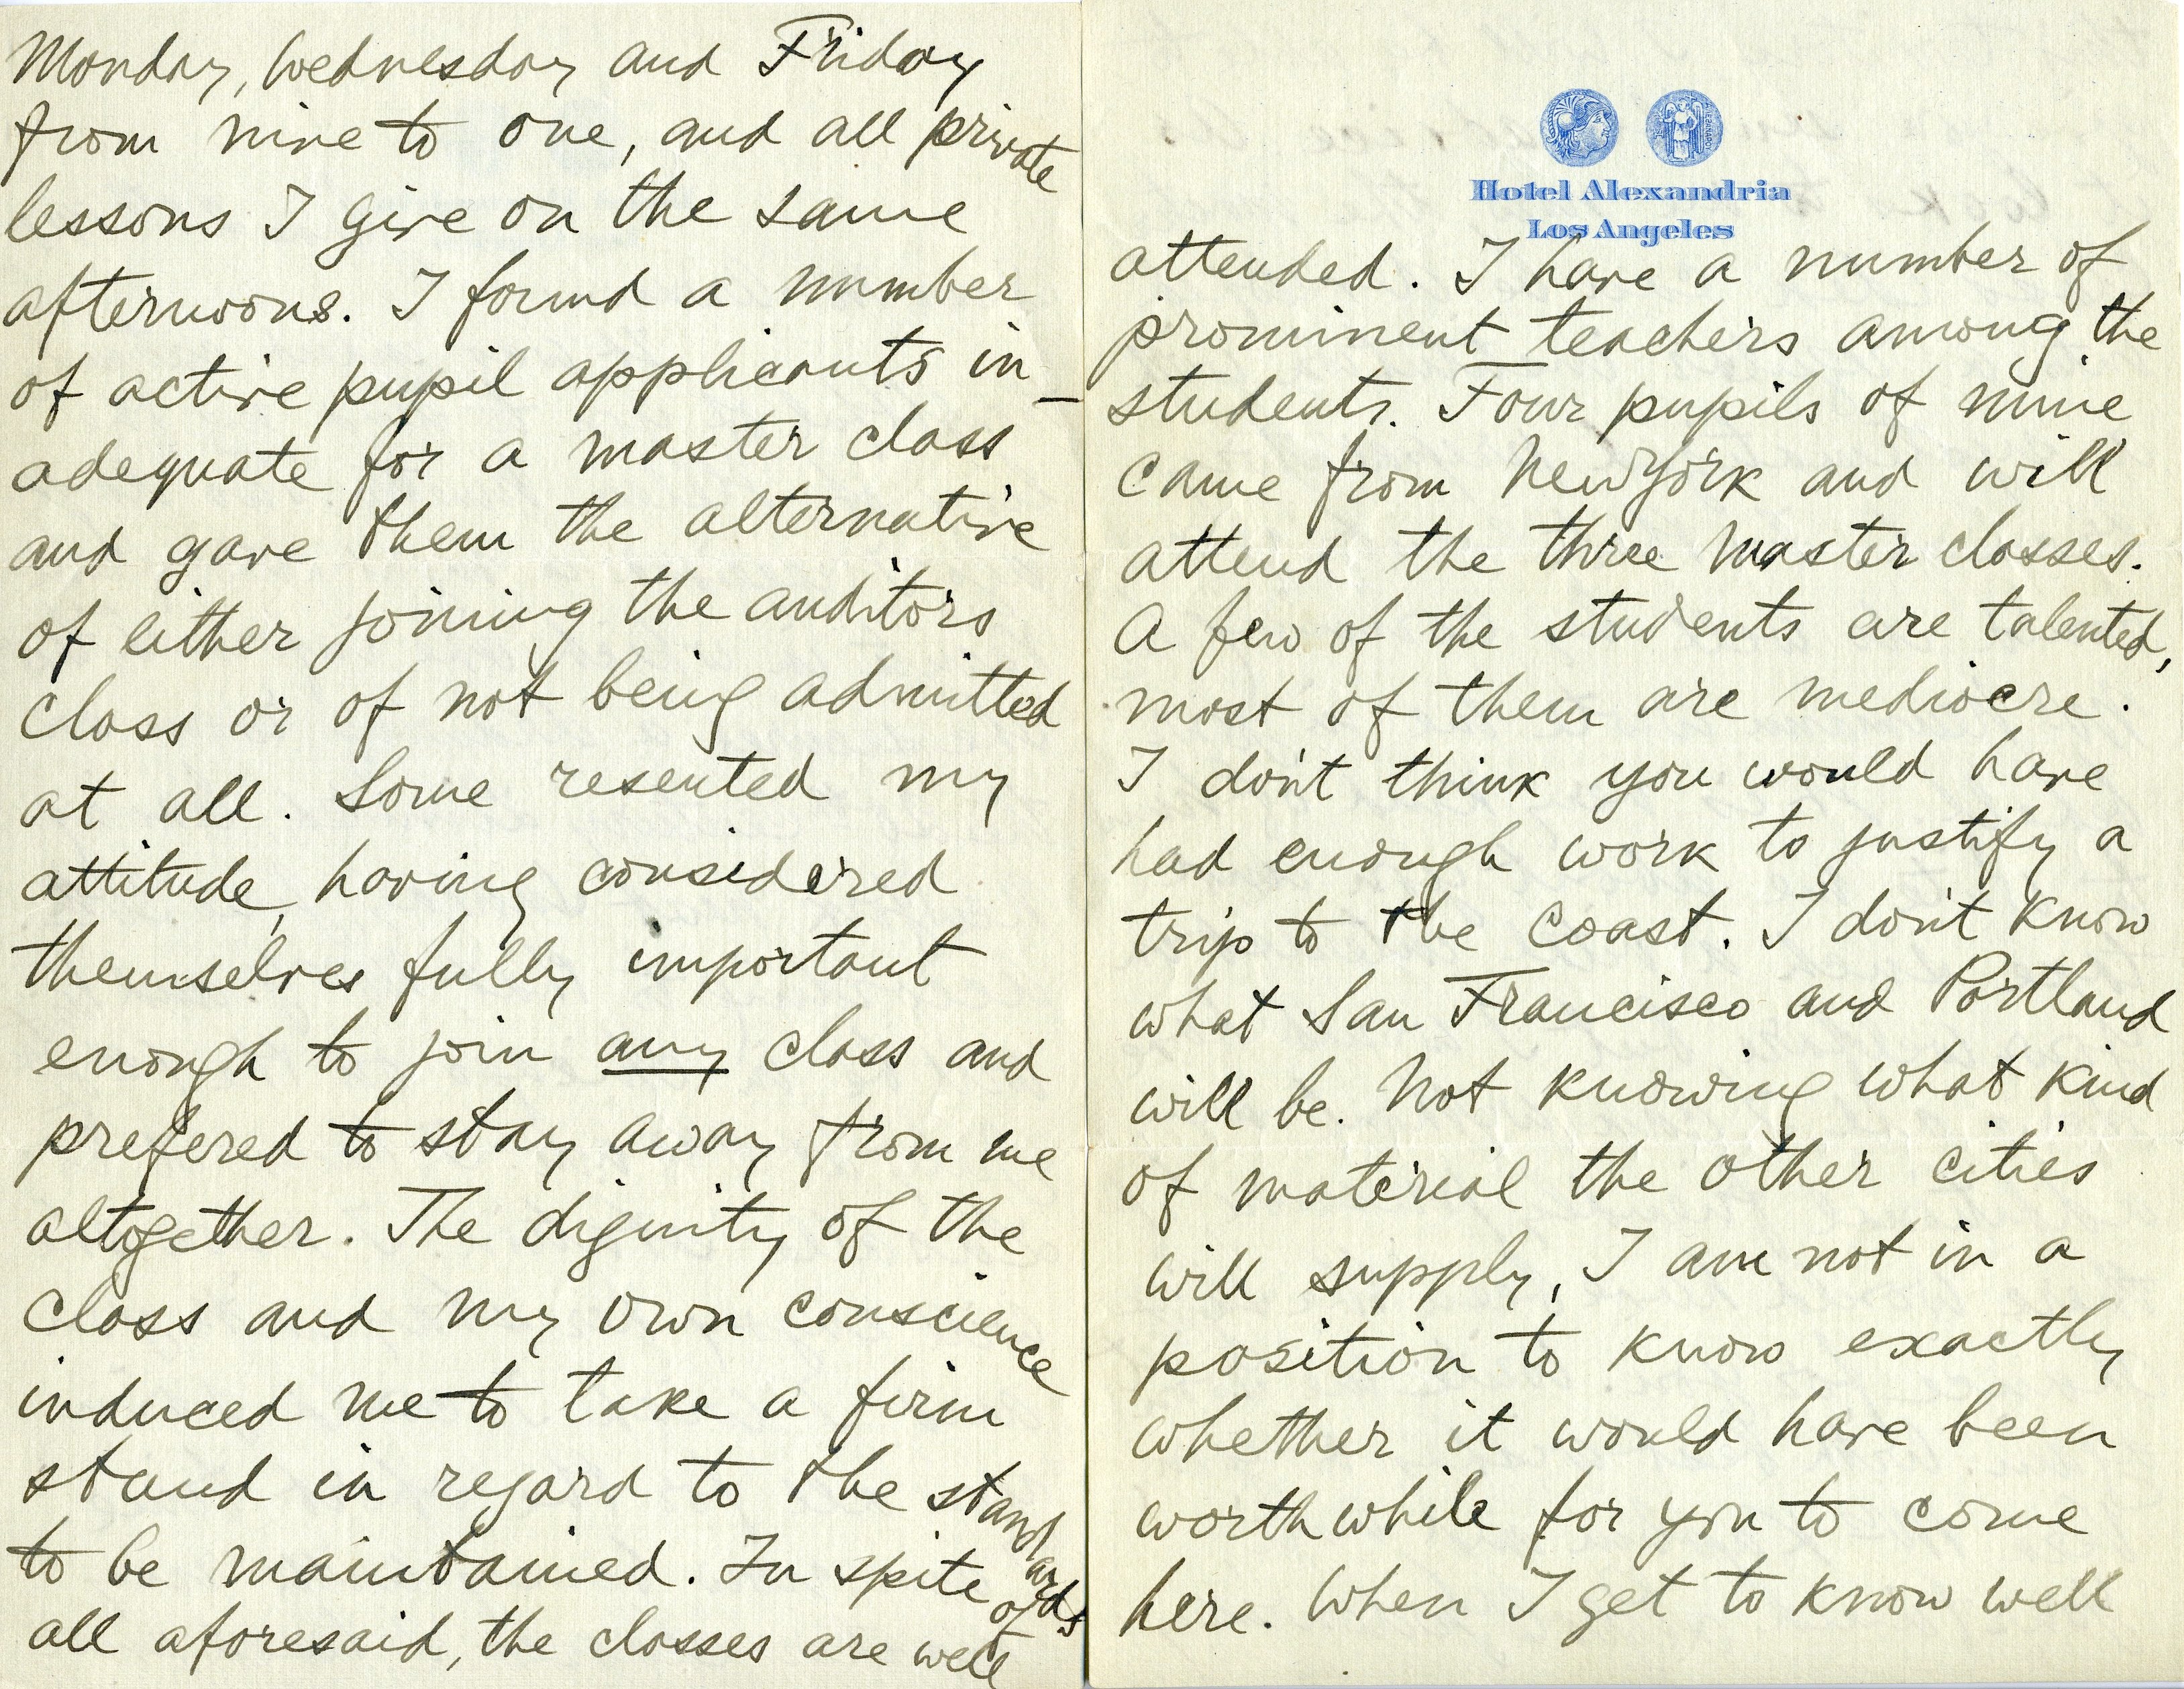 Monday, Wednesday and Friday
from nine to one, and all private
lessons I give on the same
afternoons. I found a number
of active pupil applicants in-
adequate for a master class
and gave them the alternative
of either joining the auditors
class or of not being admitted
at all. Some resented my
attitude, having considered
themselves fully important
enough to join any class and
prefered to stay away from me
altogether. The dignity of the
class and my own conscience
induced me to take a firm
stand in regard to the standards
to be maintained. In spite of
all aforesaid, the classes are well
Hotel Alexandria
Los Angeles
attended. I have a number of
prominent teachers among the
students. Four pupils of mine
came from New York and will
attend the three master classes.
A few of the students are talented,
most of them are mediocre.
I don't think you would have
had enough work to justify a
trip to the Coast. I don't know
what San Francisco and Portland
will be. Not knowing what kind
of material the other cities
will supply, I am not in a
position to know exactly
whether it would have been
worth while for you to come
here. When I get to know well